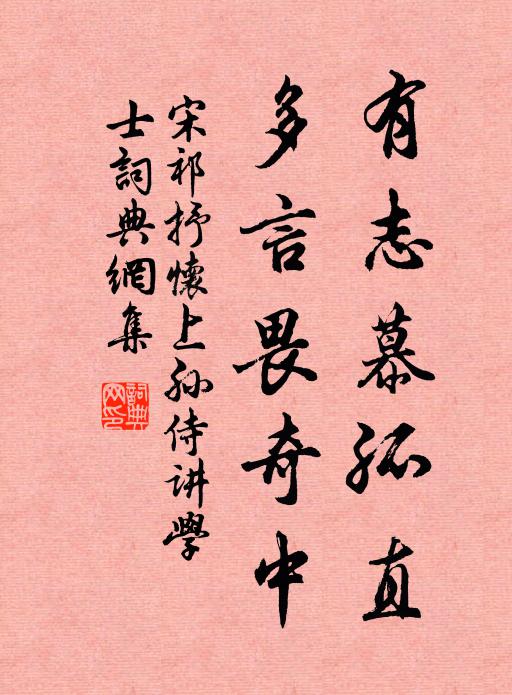 有志慕孤直
多言畏奇中
宋祁抒懷上孙侍讲學
士詞典網集
詞典网印